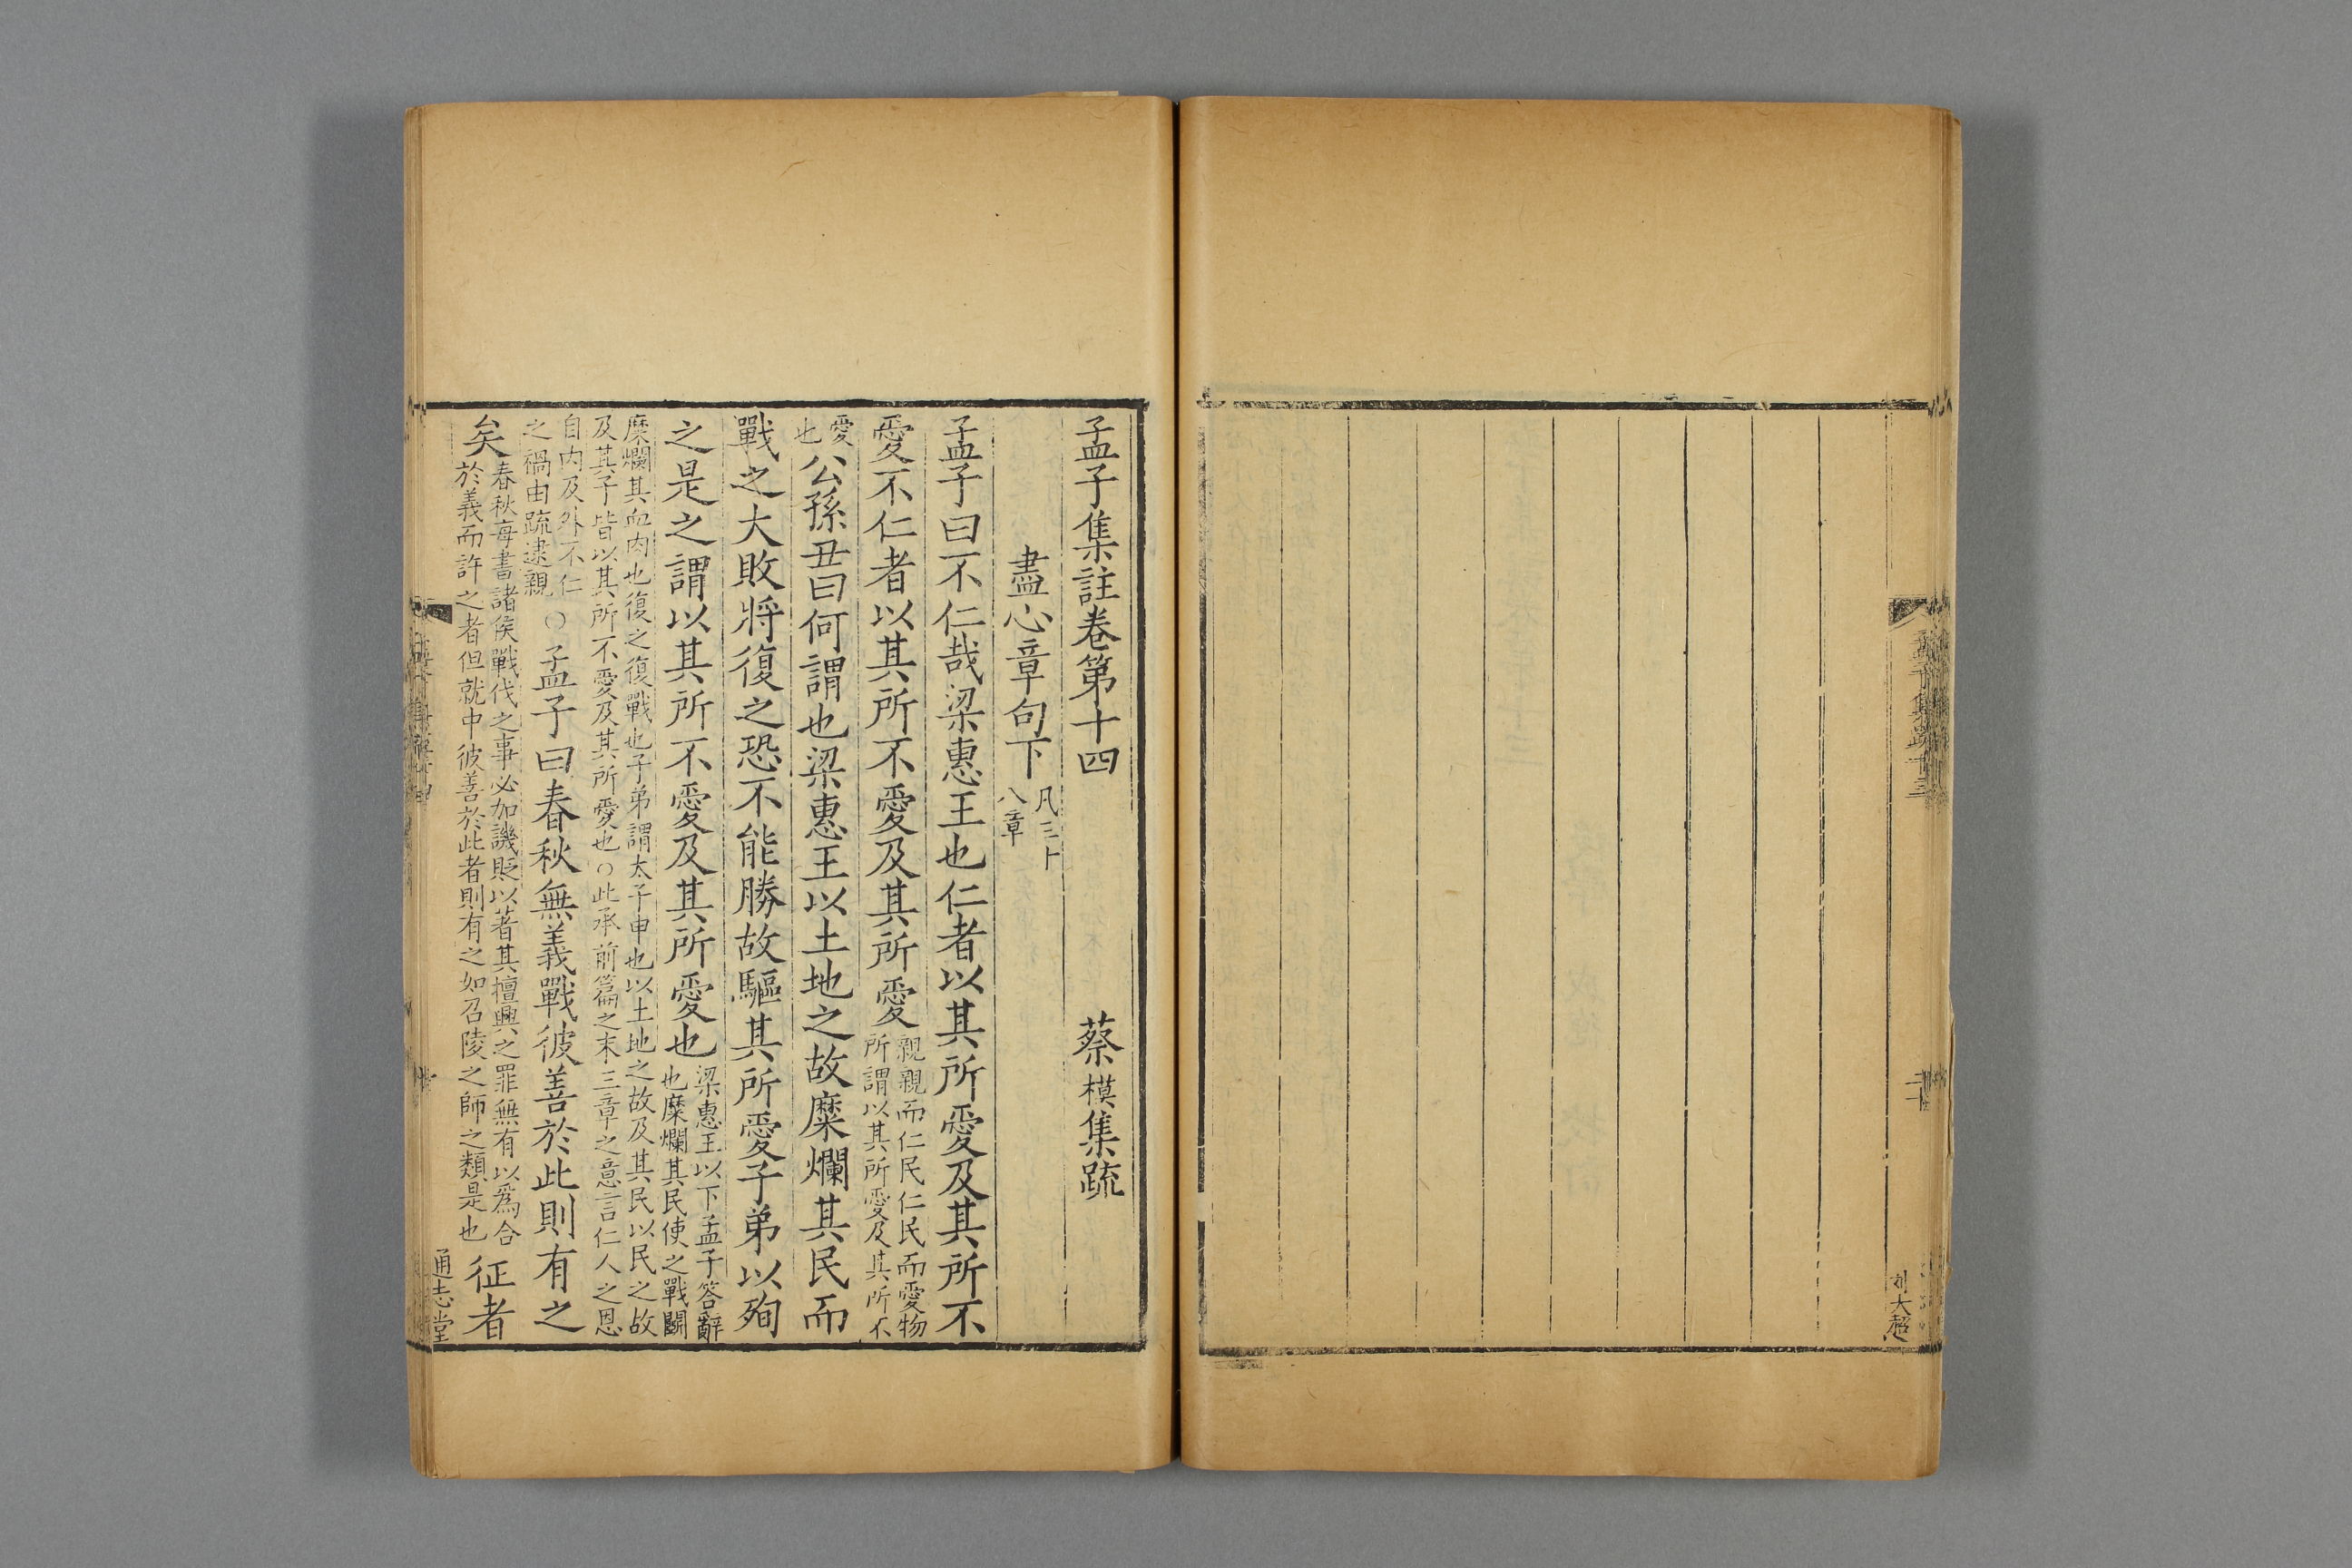 孟子集疏十三
劉大超
孟子集註卷第十四
蔡模集疏
盡心章句下
凡三十
八章
孟子曰不仁哉梁惠王也仁者以其所愛及其所不
愛不仁者以其所不愛及其所愛
親親而仁民仁民而愛物
所謂以其所愛及其所不
愛
也
公孫丑曰何謂也梁惠王以土地之故糜爛其民而
戰之大敗將復之恐不能勝故驅其所愛子弟以殉
之是之謂以其所不愛及其所愛也
梁惠王以下孟子答辭
也糜爛其民使之戰鬬
糜爛其血肉也復之復戰也子弟謂太子申也以土地之故及其民以民之故
及其子皆以其所不愛及其所愛也○此承前篇之末三章之意言仁人之恩
自内及外不仁
之禍由疏逮親
○孟子曰春秋無義戰彼善於此則有之
矣
春秋每書諸侯戰伐之事必加譏貶以著其擅興之罪無有以爲合
於義而許之者但就中彼善於此者則有之如召陵之師之類是也
征者
通志堂